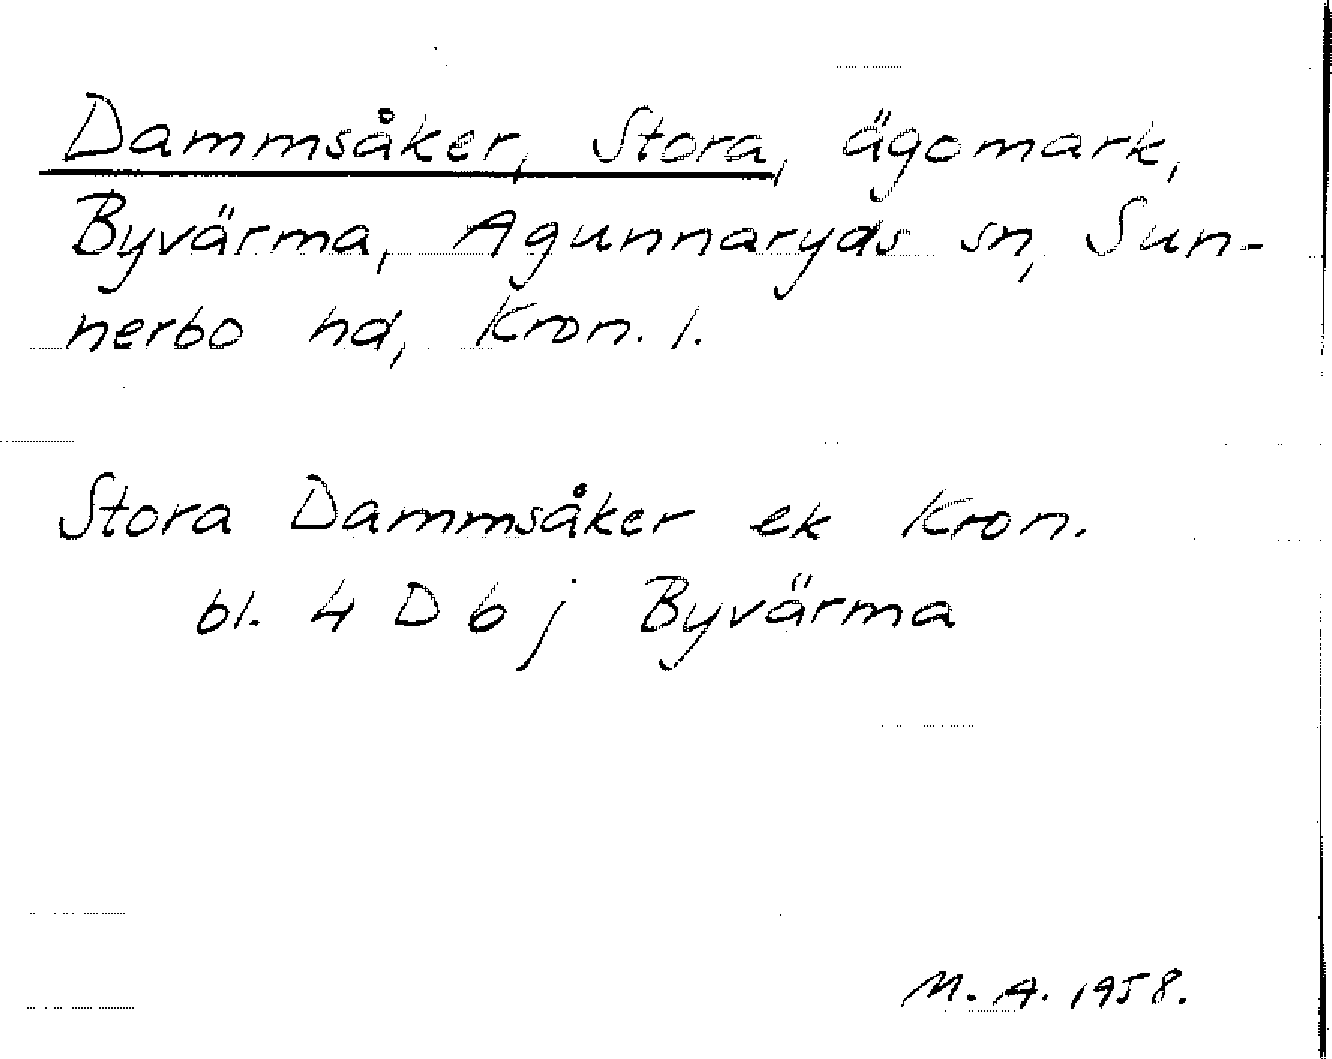 Dammsåker, Stora, ägomark,
Byvärma, Agunnaryds sn, Sun-
nerbo hd, Kron. l.
Stora Dammsåker ek Kron.
bl. 4 D 6 j Byvärma
M. A. 1958.